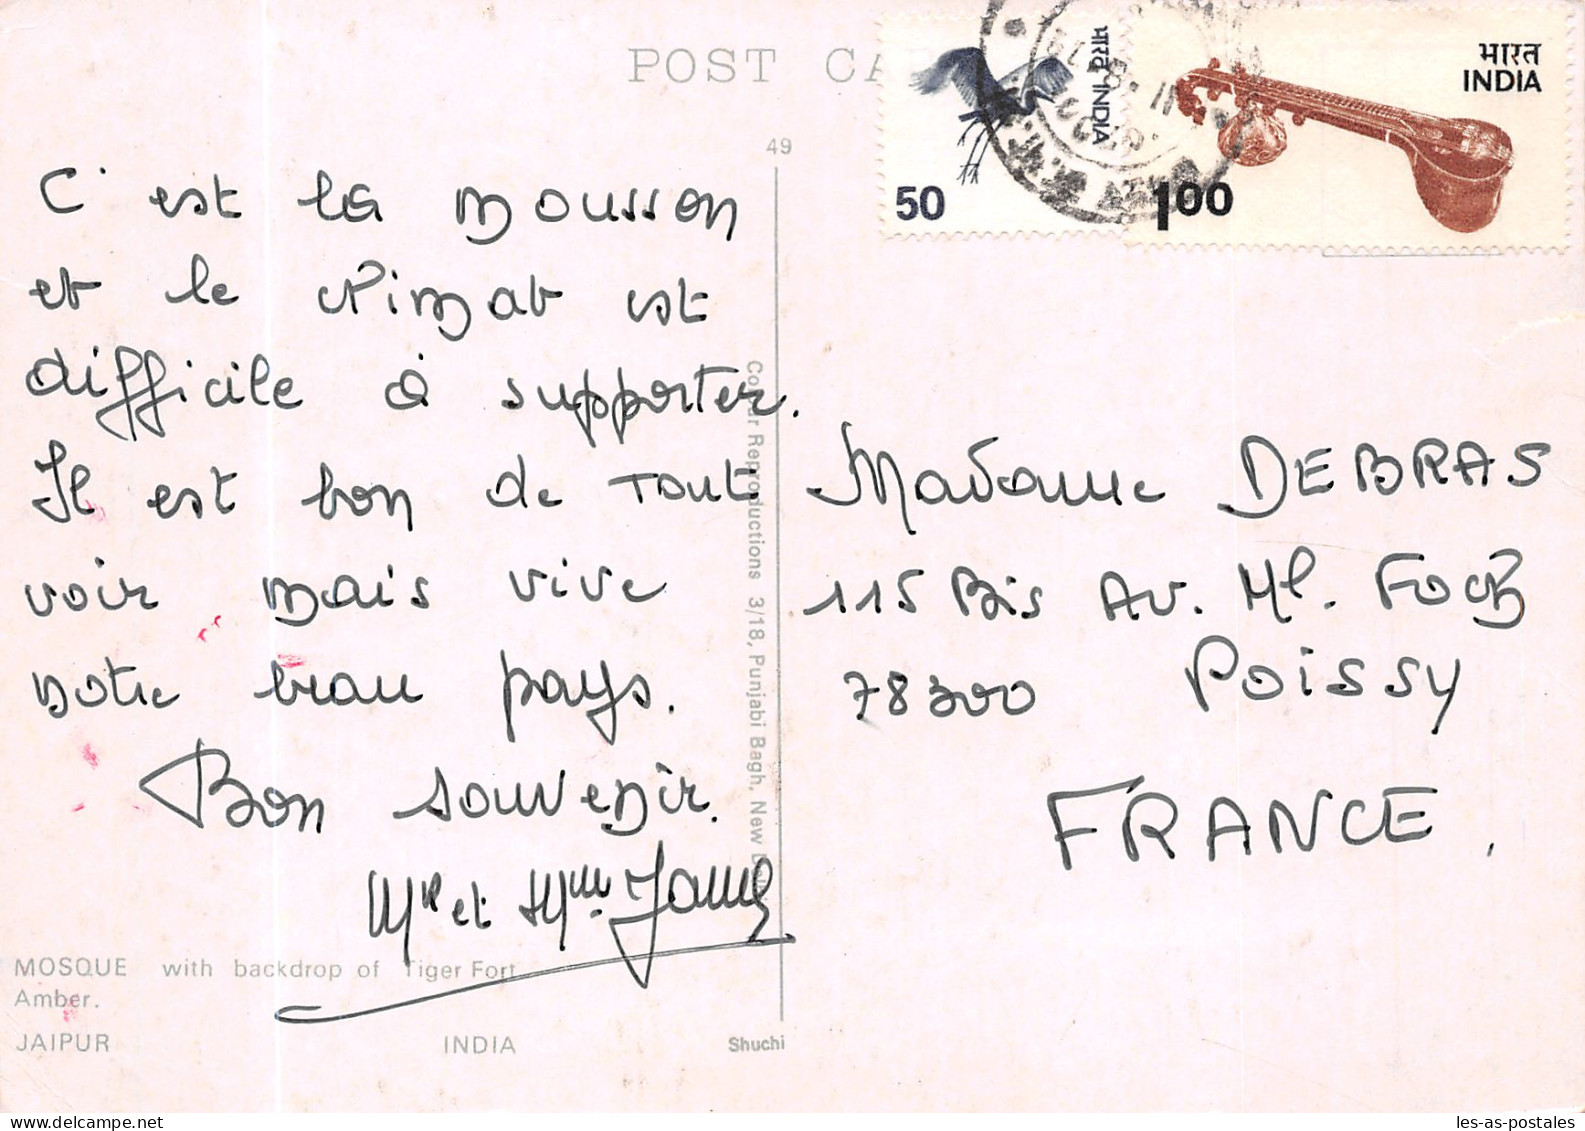 POST CA
49
भारत INDIA
50
भारत
INDIA
1.00
C'est la mousson
et le climat est
difficile à supporter.
Il est bon de tout
voir mais vive
notre beau pays.
Bon souvenir.
Mr et Mme
Madame DEBRAS
115 Bis Av. Ml. FOCH
78300 POISSY
FRANCE.
Colour Reproductions 3/18, Punjabi Bagh, New Delhi
MOSQUE with backdrop of Tiger Fort
Amber.
JAIPUR INDIA Shuchi
delcampe.net
les-as-postales